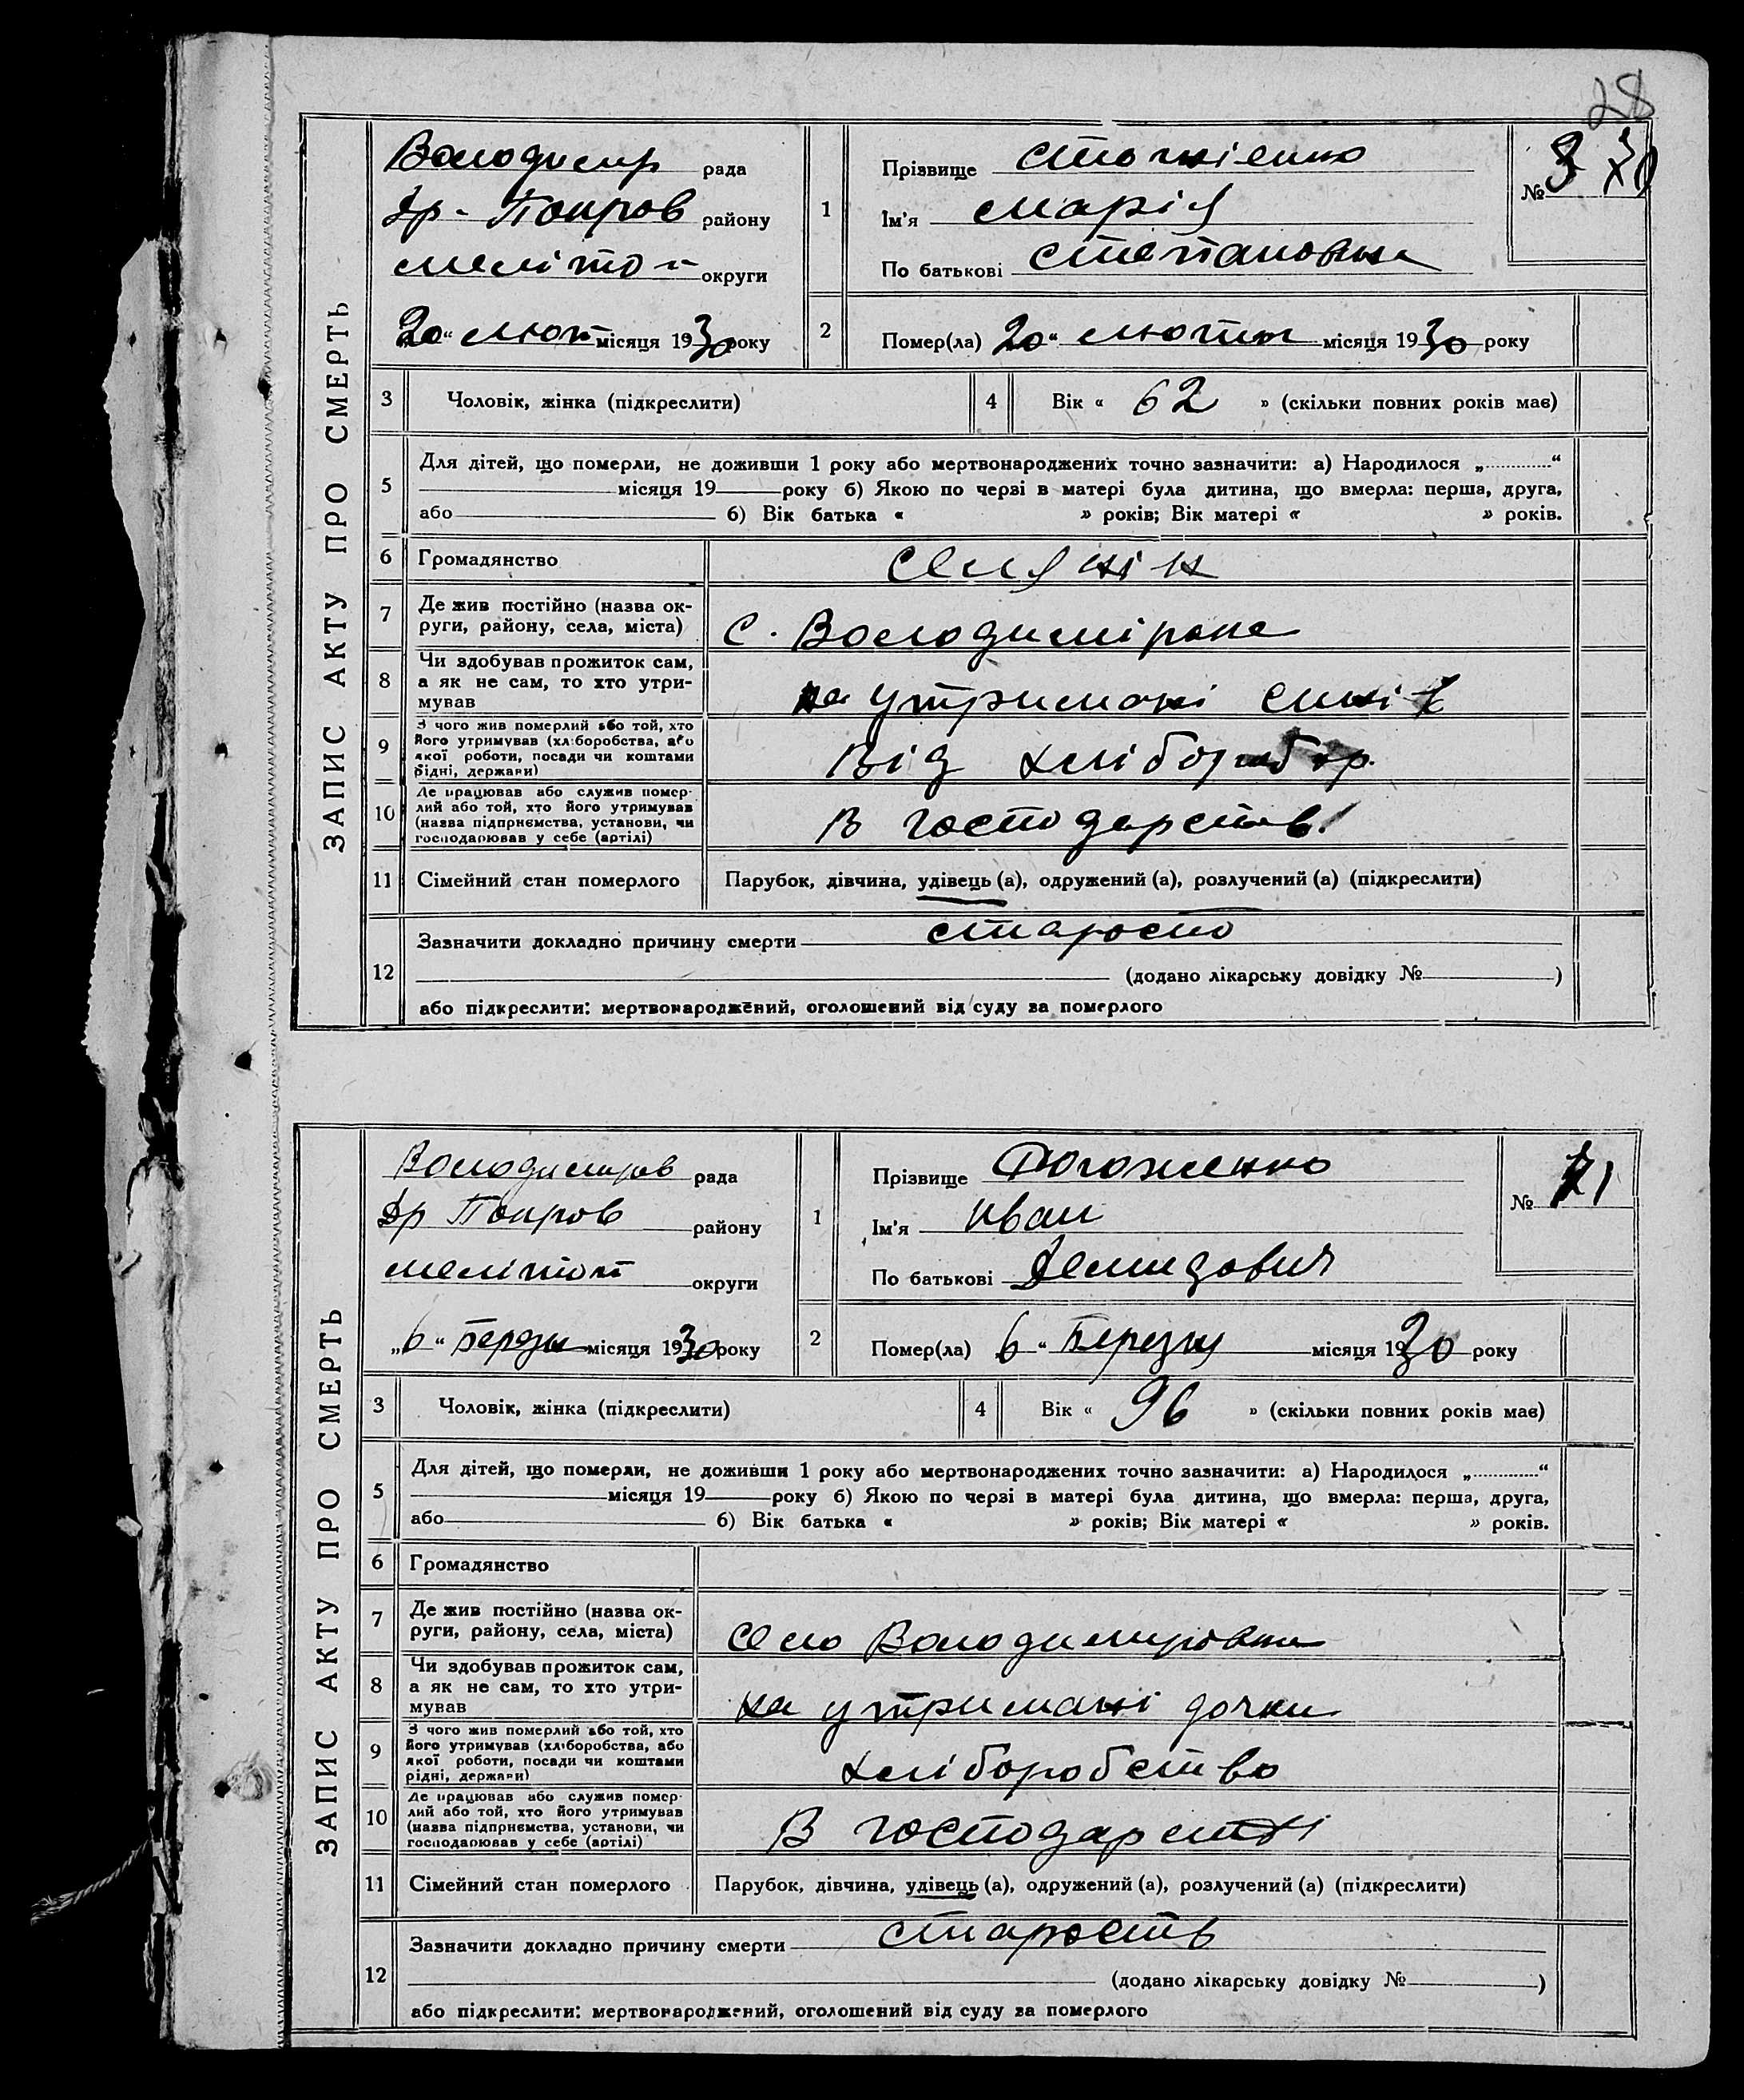 28
ЗАПИС АКТУ ПРО СМЕРТЬ
Володимир рада
Др-Покров району
меліто- округи
„20“ лют місяця 1930 року
1
Прізвище
Ім'я Марія
По батькові Степановна
№ 70
2
Помер(ла) 20 “ лютня місяця 1930 року
3 Чоловік, жінка (підкреслити)
4 Вік « 62 » (скільки повних років має)
5
Для дітей, що померли, не доживши 1 року або мертвонароджених точно зазначити: а) Народилося „............“
місяця 19 року б) Якою по черзі в матері була дитина, що вмерла: перша, друга,
або б) Вік батька « » років; Вік матері « » років.
6 Громадянство селянін
7 Де жив постійно (назва ок-
руги, району, села, міста) с. Володимірвка
8 Чи здобував прожиток сам,
а як не сам, то хто утри-
мував на утримані сині
9 З чого жив померлий або той, хто
його утримував (хліборобства, або
якої роботи, посади чи коштами
рідні, держави) від
10 Де працював або служив помер-
лий або той, хто його утримував
(назва підприємства, установи, чи
господарював у себе (артілі) В господарстві
11 Сімейний стан померлого Парубок, дівчина, удівець (а), одружений (а), розлучений (а) (підкреслити)
12
Зазначити докладно причину смерти старость
(додано лікарську довідку № )
або підкреслити: мертвонароджений, оголошений від суду за померлого
ЗАПИС АКТУ ПРО СМЕРТЬ
Володимиров рада
Др Покров району
мелітоп округи
„6“ Берзня місяця 1930 року
1
Прізвище
Ім'я Иван
По батькові Демидович
№ 71
2
Помер(ла) 6 “ Березня місяця 1930 року
3 Чоловік, жінка (підкреслити)
4 Вік « 96 » (скільки повних років має)
5
Для дітей, що померли, не доживши 1 року або мертвонароджених точно зазначити: а) Народилося „............“
місяця 19 року б) Якою по черзі в матері була дитина, що вмерла: перша, друга,
або б) Вік батька « » років; Вік матері « » років.
6 Громадянство
7 Де жив постійно (назва ок-
руги, району, села, міста) село Володимировка
8 Чи здобував прожиток сам,
а як не сам, то хто утри-
мував на утримані дочки
9 З чого жив померлий або той, хто
його утримував (хліборобства, або
якої роботи, посади чи коштами
рідні, держави) хліборобство
10 Де працював або служив помер-
лий або той, хто його утримував
(назва підприємства, установи, чи
господарював у себе (артілі) В господарстві
11 Сімейний стан померлого Парубок, дівчина, удівець (а), одружений (а), розлучений (а) (підкреслити)
12
Зазначити докладно причину смерти старость
(додано лікарську довідку № )
або підкреслити: мертвонароджений, оголошений від суду за померлого